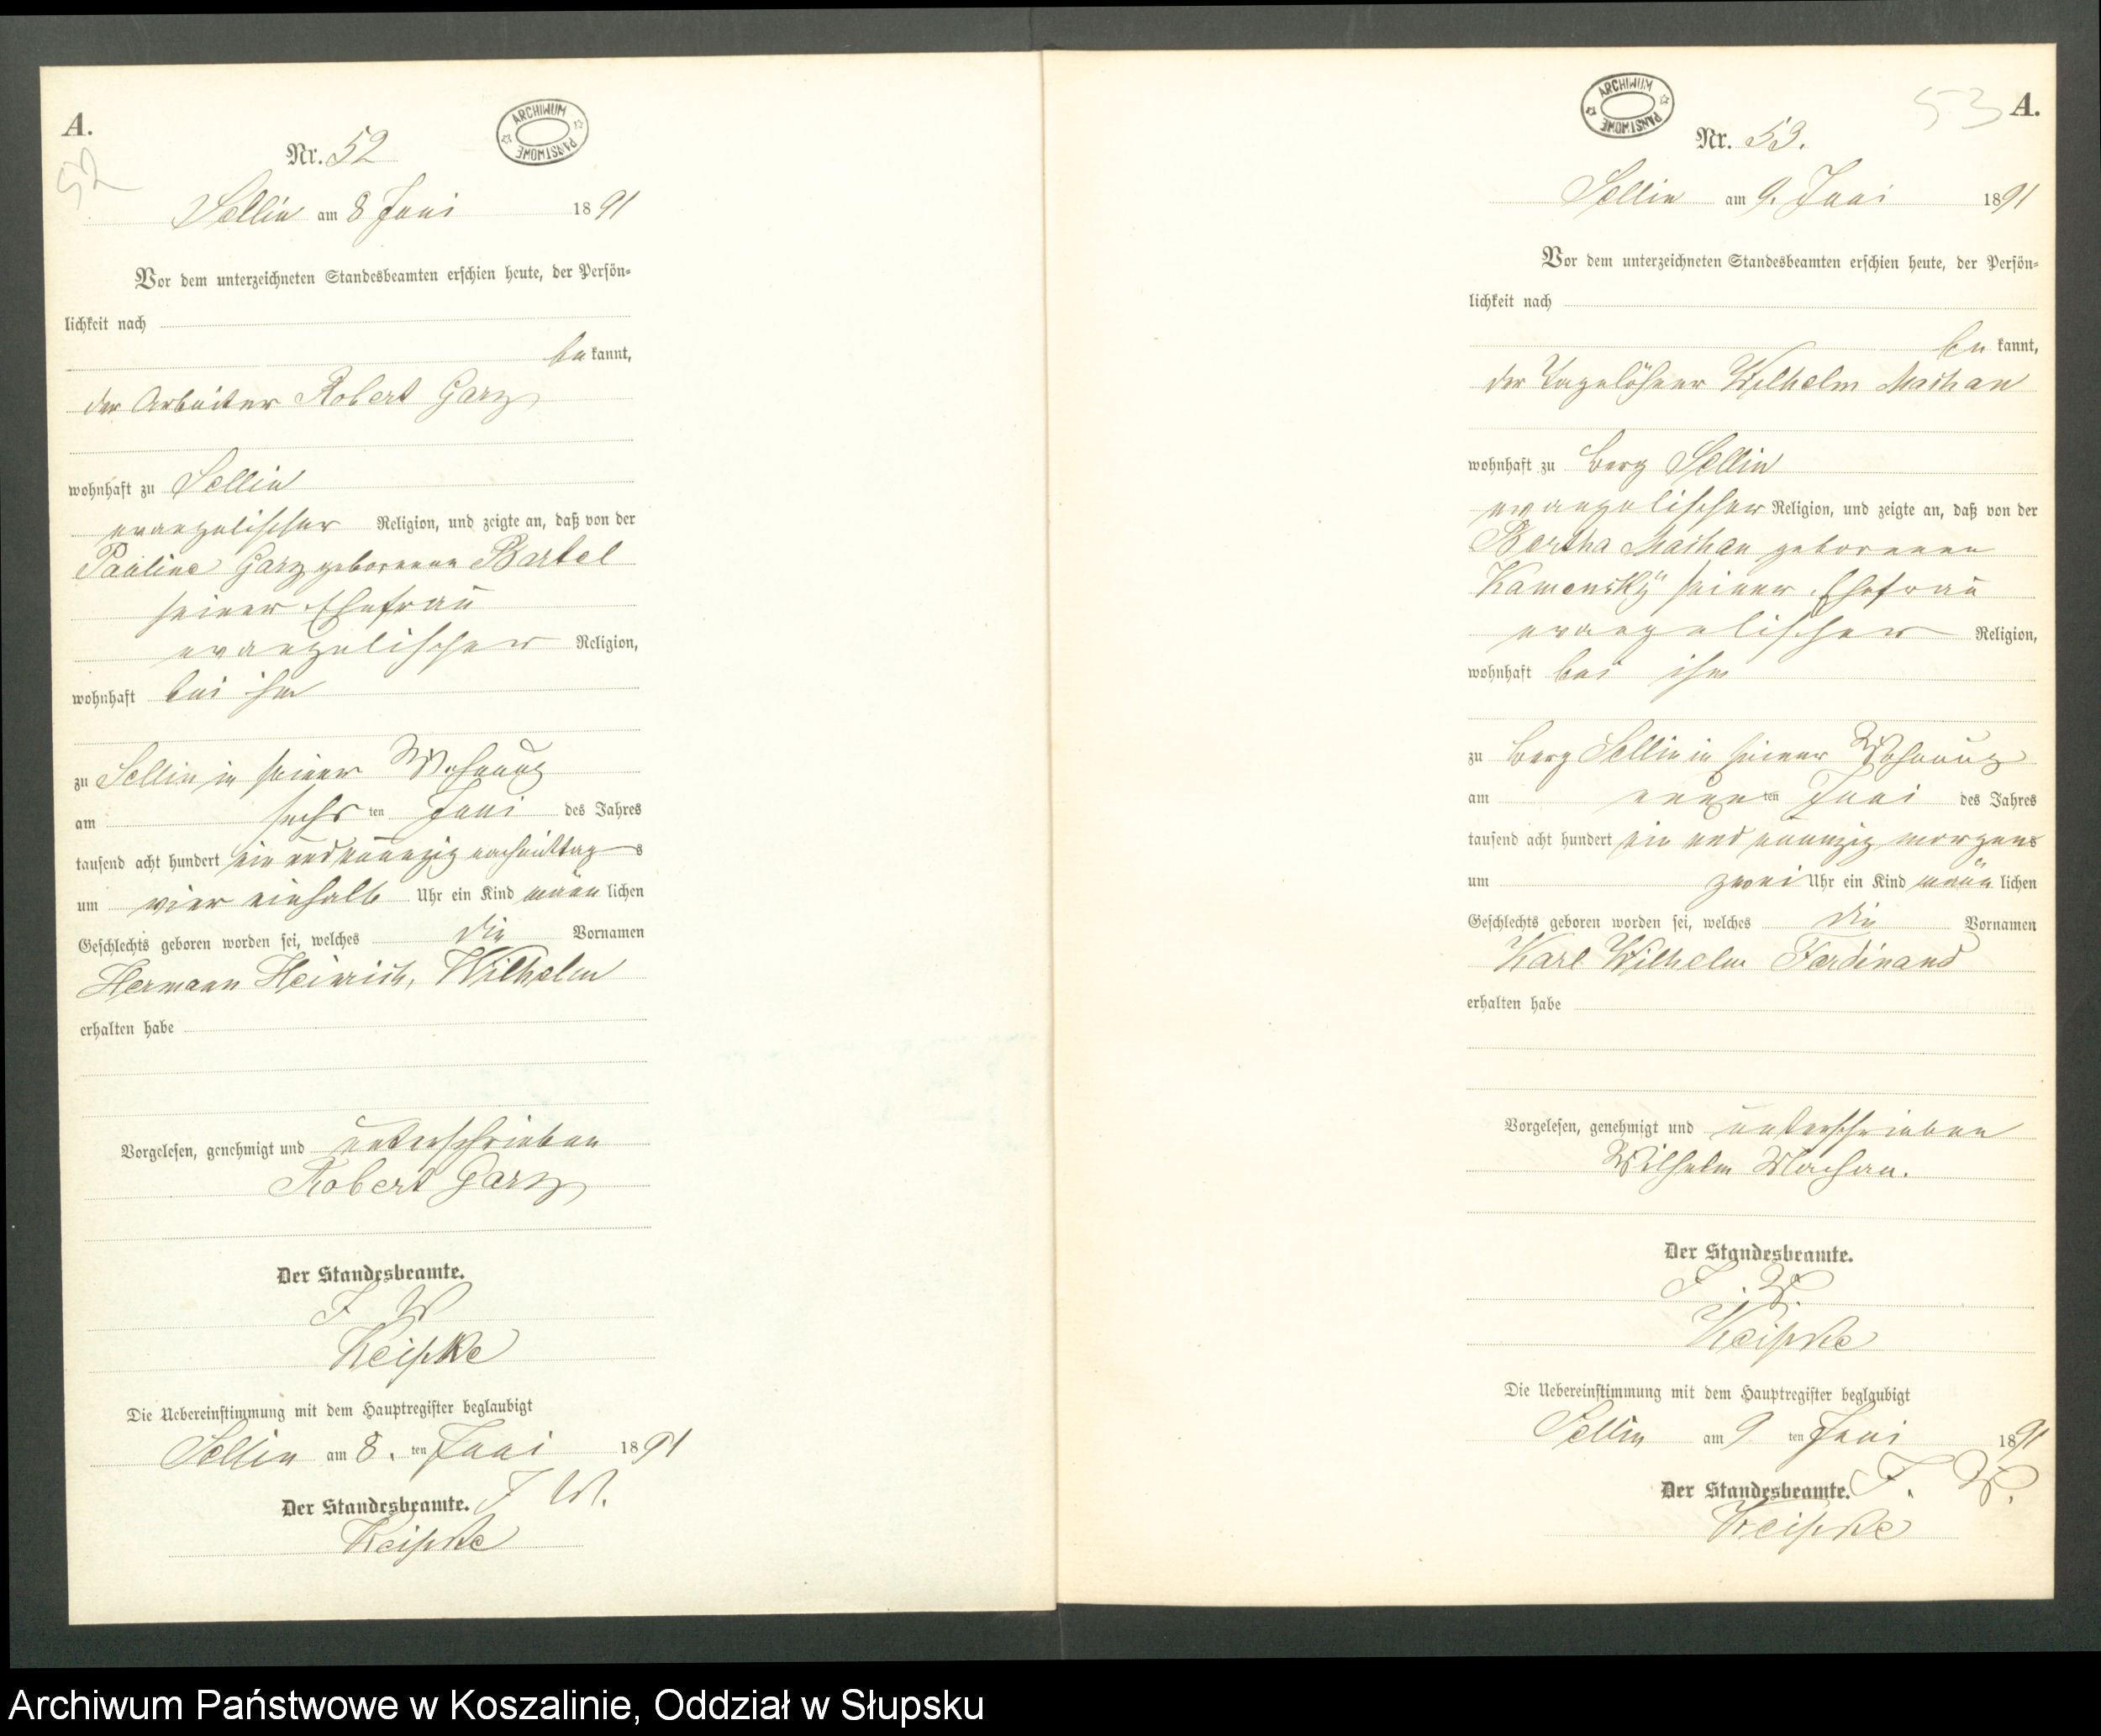 A.
52
ARCHIWUM PAŃSTWOWE
Nr. 52
Sellin am 8 Juni 1891
Vor dem unterzeichneten Standesbeamten erschien heute, der Persön-
lichkeit nach
be kannt,
der Arbeiter Robert Garz
wohnhaft zu Sellin
evangelischer Religion, und zeigte an, daß von der
Pauline Garz geborenen Bartel
seiner Ehefrau
evangelischer Religion,
wohnhaft bei ihm
zu Sellin in seiner Wohnung
am sechs ten Juni des Jahres
tausend acht hundert ein und neunzig nachmittag s
um vier einhalb Uhr ein Kind männ lichen
Geschlechts geboren worden sei, welches die Vornamen
Hermann Heinrich, Wilhelm
erhalten habe
Vorgelesen, genehmigt und unterschrieben
Robert Garz
Der Standesbeamte.
J W
Keipke
Die Uebereinstimmung mit dem Hauptregister beglaubigt
Sellin am 8. ten Juni 1891
Der Standesbeamte. J W.
Keipke
ARCHIWUM PAŃSTWOWE
53
A.
Nr. 53.
Sellin am 9. Juni 1891
Vor dem unterzeichneten Standesbeamten erschien heute, der Persön-
lichkeit nach
be kannt,
der Tagelöhner Wilhelm Machan
wohnhaft zu Berg Sellin
evangelischer Religion, und zeigte an, daß von der
Bertha Machan geborenen
Kamensky seiner Ehefrau
evangelischer Religion,
wohnhaft bei ihm
zu Berg Sellin in seiner Wohnung
am neun ten Juni des Jahres
tausend acht hundert ein und neunzig morgens
um zwei Uhr ein Kind männ lichen
Geschlechts geboren worden sei, welches die Vornamen
Karl Wilhelm Ferdinand
erhalten habe
Vorgelesen, genehmigt und unterschrieben
Wilhelm Machan.
Der Standesbeamte.
J. W.
Keipke
Die Uebereinstimmung mit dem Hauptregister beglaubigt
Sellin am 9 ten Juni 1891
Der Standesbeamte. J. W.
Keipke
Archiwum Państwowe w Koszalinie, Oddział w Słupsku